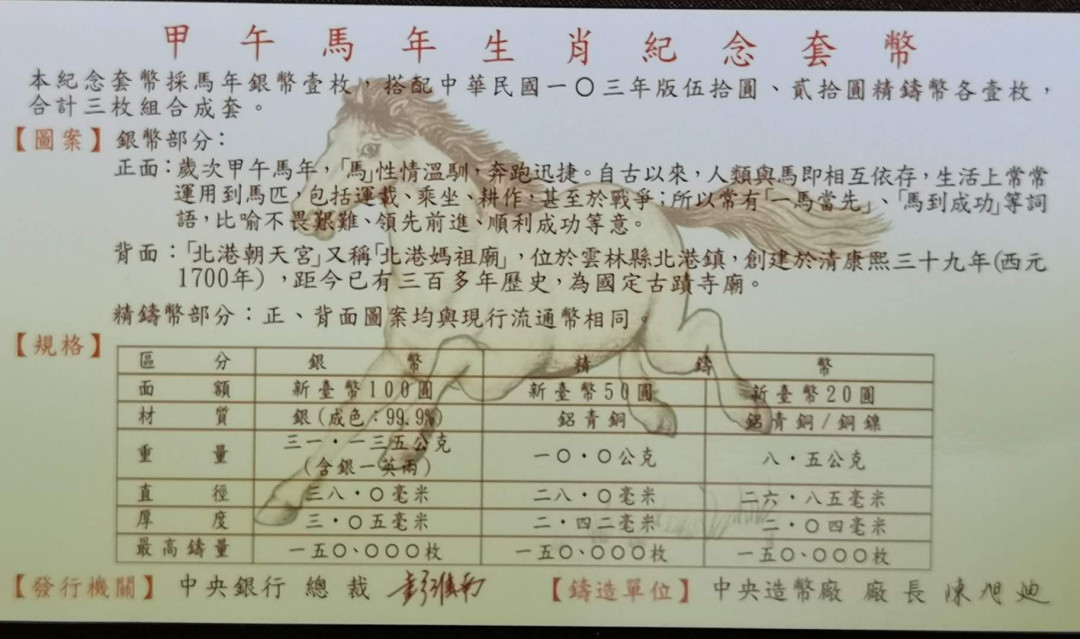 甲午馬年生肖紀念套幣
本紀念套幣採馬年銀幣壹枚，搭配中華民國一〇三年版伍拾圓、貳拾圓精鑄幣各壹枚，
合計三枚組合成套。
【圖案】銀幣部分：
正面：歲次甲午馬年，「馬」性情溫馴，奔跑迅捷。自古以來，人類與馬即相互依存，生活上常常
運用到馬匹，包括運載、乘坐、耕作，甚至於戰爭；所以常有「一馬當先」、「馬到成功」等詞
語，比喻不畏艱難、領先前進、順利成功等意。
背面：「北港朝天宮」又稱「北港媽祖廟」，位於雲林縣北港鎮，創建於清康熙三十九年(西元
1700年)，距今已有三百多年歷史，為國定古蹟寺廟。
精鑄幣部分：正、背面圖案均與現行流通幣相同。
【規格】
區分 銀幣 精鑄幣
面額 新臺幣100圓 新臺幣50圓 新臺幣20圓
材質 銀(成色：99.9%) 鋁青銅 鋁青銅/銅鎳
重量 三一・一三五公克 一〇・〇公克 八・五公克
(含銀一英兩)
直徑 三八・〇毫米 二八・〇毫米 二六・八五毫米
厚度 三・〇五毫米 二・四二毫米 二・〇四毫米
最高鑄量 一五〇、〇〇〇枚 一五〇、〇〇〇枚 一五〇、〇〇〇枚
【發行機關】中央銀行 總裁 彭淮南 【鑄造單位】中央造幣廠 廠長 陳旭迪